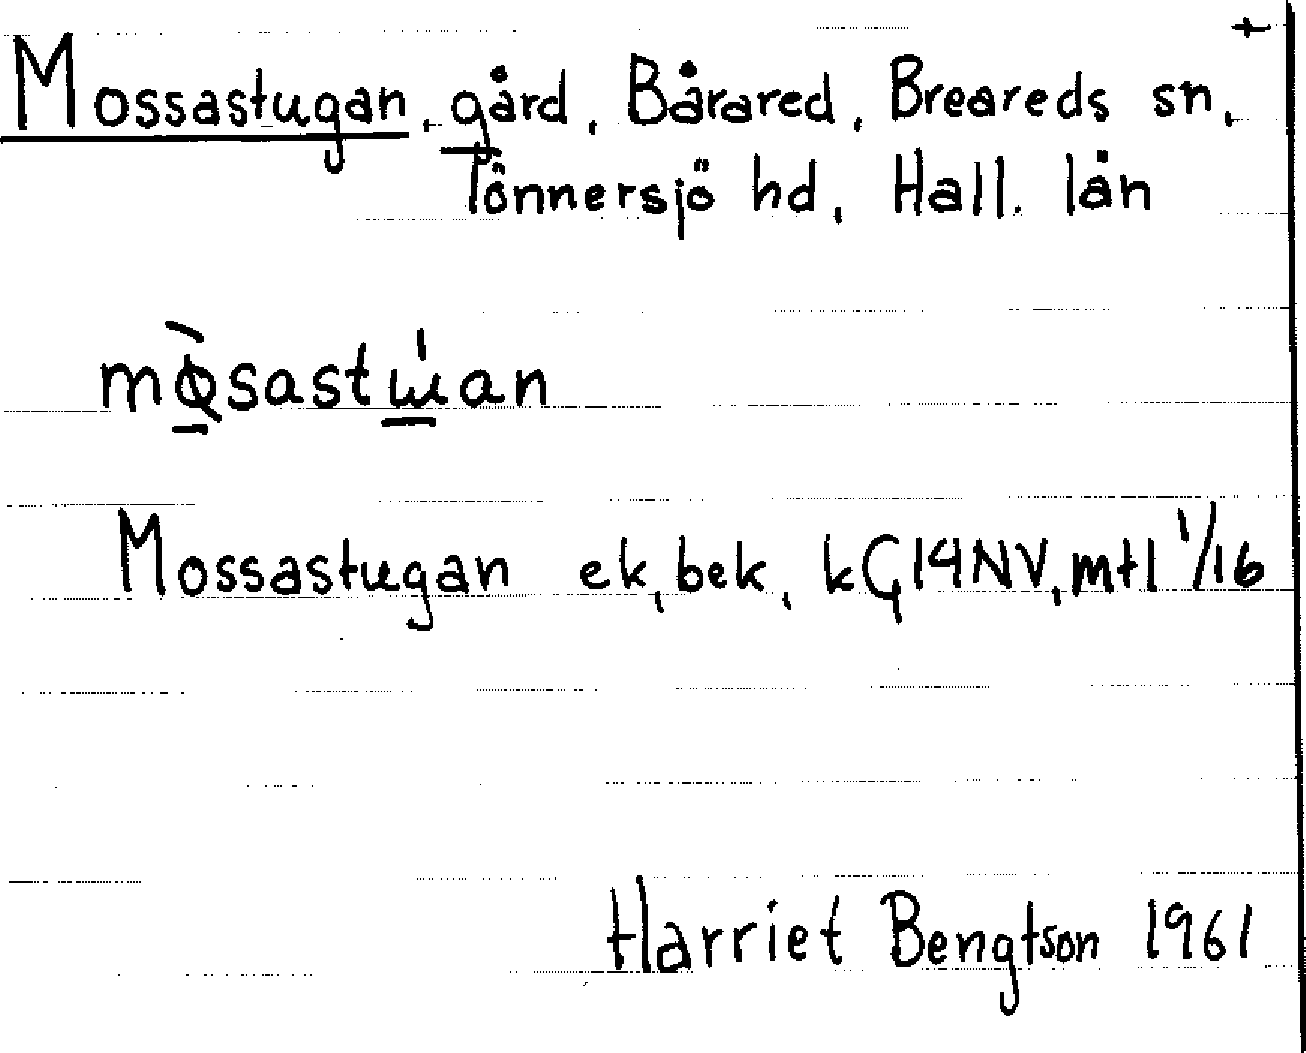 +
Mossastugan, gård, Bårared, Breareds sn,
Tönnersjö hd, Hall. län
Mossastugan ek, bek, kG14NV, mtl 1/16
Harriet Bengtson 1961